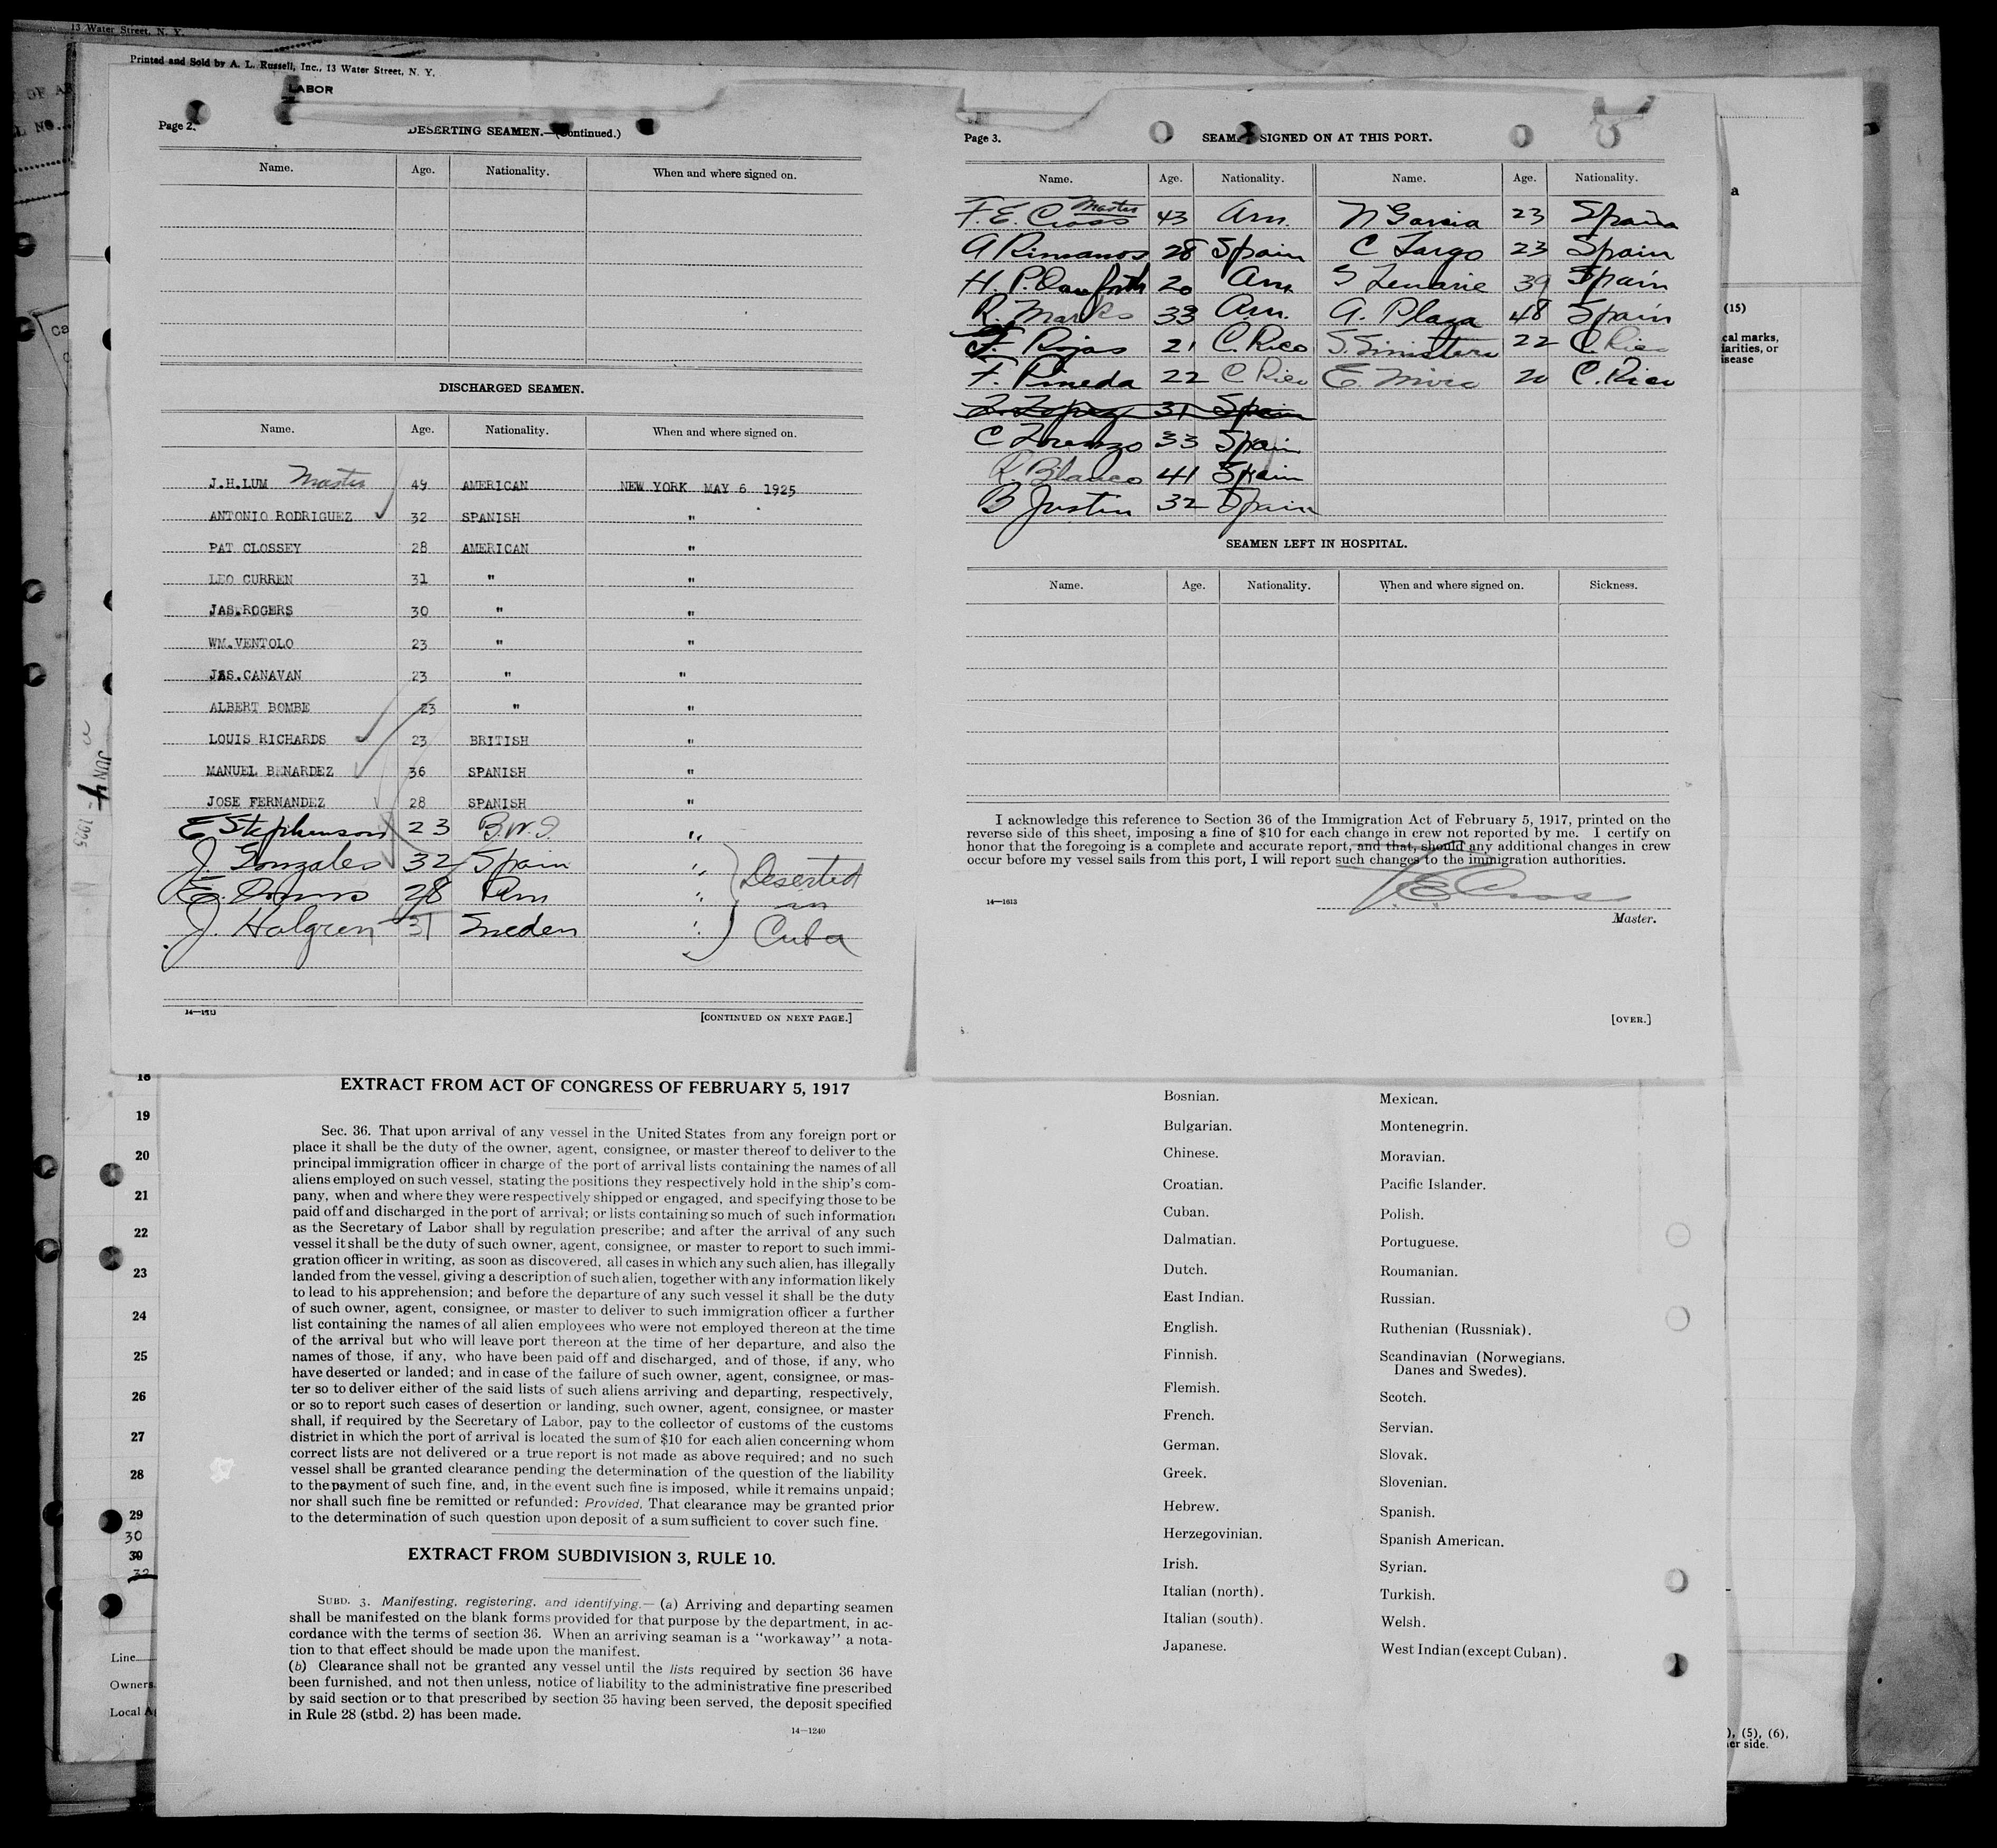 13 Water Street, N. Y.
Printed and Sold by A. L. Russell, Inc., 13 Water Street, N. Y.
LABOR
Page 2.
DESERTING SEAMEN.—(Continued.)
Name. Age. Nationality. When and where signed on.
DISCHARGED SEAMEN.
Name. Age. Nationality. When and where signed on.
J.H.LUM Master 49 AMERICAN NEW YORK MAY 6 1925
ANTONIO RODRIGUEZ 32 SPANISH "
PAT CLOSSEY 28 AMERICAN "
LEO CURREN 31 " "
JAS.ROGERS 30 " "
WM.VENTOLO 23 " "
JAS.CANAVAN 23 " "
ALBERT BOMBE 23 " "
LOUIS RICHARDS 23 BRITISH "
MANUEL BENARDEZ 36 SPANISH "
JOSE FERNANDEZ 28 SPANISH "
E Stephenson 23 B.W.I. "
J. Gonzales 32 Spain " Deserted
E. 28 " in
J. Halgren 31 Sweden " Cuba
14—1613
[CONTINUED ON NEXT PAGE.]
JUN 4 - 1925
Page 3.
SEAMEN SIGNED ON AT THIS PORT.
Name. Age. Nationality. Name. Age. Nationality.
F. E. Cross Master 43 Am. N Garcia 23 Spain
A Rimanos 28 Spain C Largo 23 Spain
H. P. Danforth 20 Am. S 39 Spain
R. Marks 33 Am. A. Plaza 48 Spain
F. Rojas 21 C. Rico S. Sinistera 22 C. Rico
F. Pineda 22 C Rico E. Mira 20 C. Rico
Lopez 31 Spain
C Lorenzo 33 Spain
R. Blanco 41 Spain
B Justin 32 Spain
SEAMEN LEFT IN HOSPITAL.
Name. Age. Nationality. When and where signed on. Sickness.
I acknowledge this reference to Section 36 of the Immigration Act of February 5, 1917, printed on the
reverse side of this sheet, imposing a fine of $10 for each change in crew not reported by me. I certify on
honor that the foregoing is a complete and accurate report, and that, should any additional changes in crew
occur before my vessel sails from this port, I will report such changes to the immigration authorities.
F. E. Cross
14—1613
Master.
[OVER.]
a
(15)
cal marks,
iarities, or
isease
EXTRACT FROM ACT OF CONGRESS OF FEBRUARY 5, 1917
Sec. 36. That upon arrival of any vessel in the United States from any foreign port or
place it shall be the duty of the owner, agent, consignee, or master thereof to deliver to the
principal immigration officer in charge of the port of arrival lists containing the names of all
aliens employed on such vessel, stating the positions they respectively hold in the ship's com-
pany, when and where they were respectively shipped or engaged, and specifying those to be
paid off and discharged in the port of arrival; or lists containing so much of such information
as the Secretary of Labor shall by regulation prescribe; and after the arrival of any such
vessel it shall be the duty of such owner, agent, consignee, or master to report to such immi-
gration officer in writing, as soon as discovered, all cases in which any such alien, has illegally
landed from the vessel, giving a description of such alien, together with any information likely
to lead to his apprehension; and before the departure of any such vessel it shall be the duty
of such owner, agent, consignee, or master to deliver to such immigration officer a further
list containing the names of all alien employees who were not employed thereon at the time
of the arrival but who will leave port thereon at the time of her departure, and also the
names of those, if any, who have been paid off and discharged, and of those, if any, who
have deserted or landed; and in case of the failure of such owner, agent, consignee, or mas-
ter so to deliver either of the said lists of such aliens arriving and departing, respectively,
or so to report such cases of desertion or landing, such owner, agent, consignee, or master
shall, if required by the Secretary of Labor, pay to the collector of customs of the customs
district in which the port of arrival is located the sum of $10 for each alien concerning whom
correct lists are not delivered or a true report is not made as above required; and no such
vessel shall be granted clearance pending the determination of the question of the liability
to the payment of such fine, and, in the event such fine is imposed, while it remains unpaid;
nor shall such fine be remitted or refunded: Provided, That clearance may be granted prior
to the determination of such question upon deposit of a sum sufficient to cover such fine.
EXTRACT FROM SUBDIVISION 3, RULE 10.
SUBD. 3. Manifesting, registering, and identifying.— (a) Arriving and departing seamen
shall be manifested on the blank forms provided for that purpose by the department, in ac-
cordance with the terms of section 36. When an arriving seaman is a "workaway" a nota-
tion to that effect should be made upon the manifest.
(b) Clearance shall not be granted any vessel until the lists required by section 36 have
been furnished, and not then unless, notice of liability to the administrative fine prescribed
by said section or to that prescribed by section 35 having been served, the deposit specified
in Rule 28 (stbd. 2) has been made.
14—1240
18
19
20
21
22
23
24
25
26
27
28
29
30
30
32
Line
Owners
Local Ag
Bosnian. Mexican.
Bulgarian. Montenegrin.
Chinese. Moravian.
Croatian. Pacific Islander.
Cuban. Polish.
Dalmatian. Portuguese.
Dutch. Roumanian.
East Indian. Russian.
English. Ruthenian (Russniak).
Finnish. Scandinavian (Norwegians.
Danes and Swedes).
Flemish. Scotch.
French. Servian.
German. Slovak.
Greek. Slovenian.
Hebrew. Spanish.
Herzegovinian. Spanish American.
Irish. Syrian.
Italian (north). Turkish.
Italian (south). Welsh.
Japanese. West Indian (except Cuban).
), (5), (6),
her side.